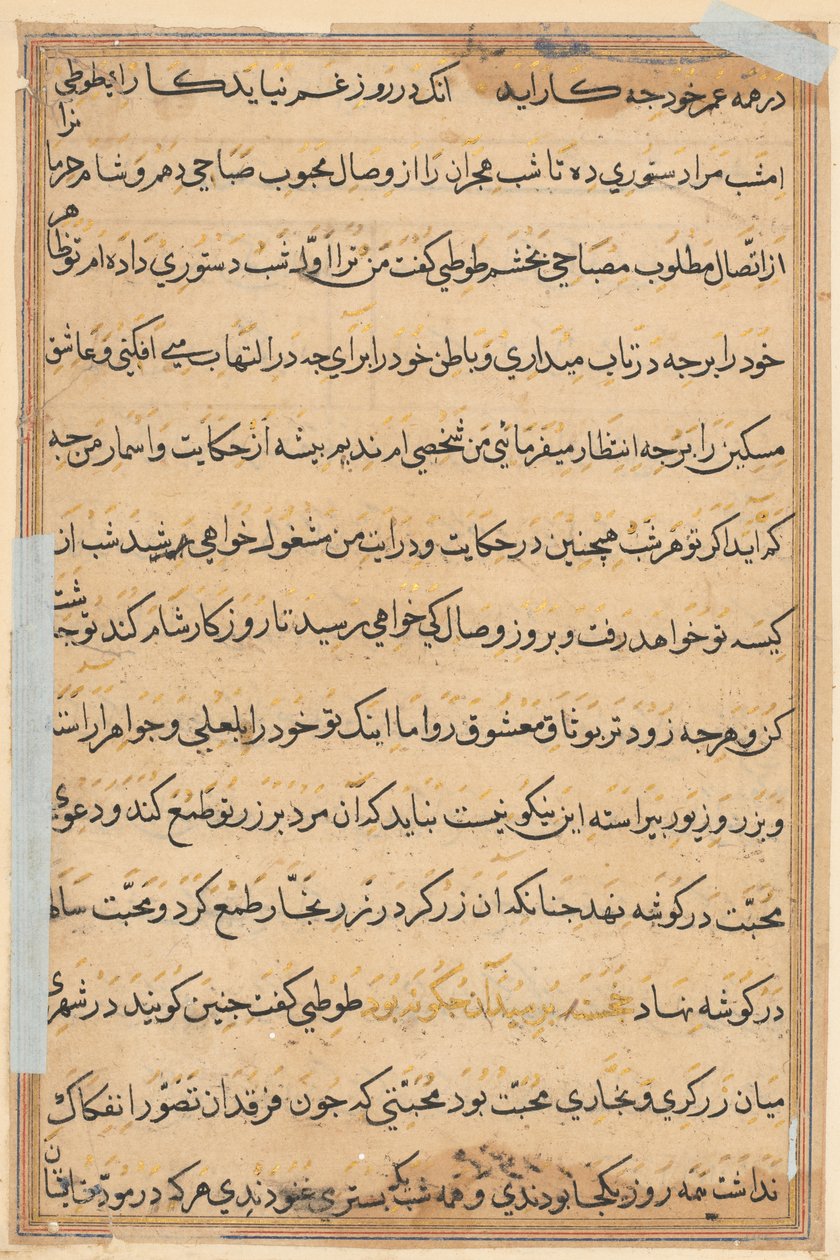 در همه عمر خود جه کار اید انک در روز غم نیاید کار ای طوطی
امشب مرا دستوري ده تا شب هجران را از وصال محبوب صباحي دهم و شام حرمانرا
از اتّصال مطلوب مصباحي بخشم طوطي کفت من ترا اوّل شب دستوري داده ام تو ظاهر
خود را بر جه در تاب میداري و باطن خود را براي جه در التهاب مي افکني و عاشق
مسکین را بر جه انتظار میفرمائي من شخصي ام ندیم بیشه از حکایت و اسمار من جه
کم آید اکر تو هر شب همچنین در حکایت و درایت من مشغول خواهي شد شب از
کیسه تو خواهد رفت و بروز وصال کي خواهي رسید تا روز کار شام کند تو جاشت
کن و هر جه زود تر بوثاق معشوق روا ما اینک تو خود را بلعلي و جواهر اراسته
و بزر و زیور بیراسته این نیکو نیست نباید که آن مرد بر زر تو طمع کند و دعوي
محبّت در کوشه نهد جنانکه ان زرکر در زر نجّار طمع کرد و محبّت ساله
در کوشه نهاد خجسته برسید آن جکونه بود طوطي کفت جنین کویند در شهري
میان زرکري و نجّاري محبّت بود محبّتي که جون فرقدان تصوّر انفکاک
نداشت همه روز یکجا بودندي و همه شب یک بستري غنودندي هر که در مودّت ایشان